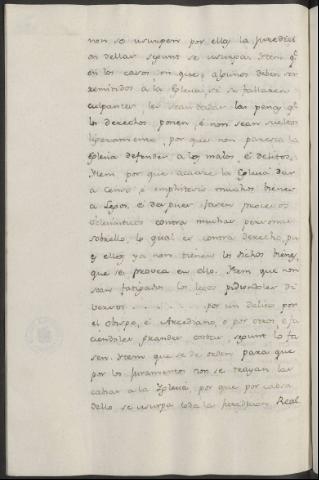 non se usurpen por ellos la juredicci
on dellas segunt se usurpa. Item q.e
en los casos en que algunos deben ser
remitidos a la Iglesia, é se fallaren
culpantes, les sean dadas las penas q.e
los derechos ponen, é non sean sueltos
ligeramente, por que non paresca la
Iglesia defender a los malos, é delitos.
Item por que acaece la Iglesia dar
a censo é emphiteosis muchos bienes
a legos, é despues facen procesos
eclesiasticos contra muchas personas
sobrello, lo qual es contra derecho, pu
es ellos ya non tienen los dichos bienes,
que se provea en ello. Item que non
sean fatigados los legos pidiendoles di
versos . . . . . . . . por un delito por
el obispo, é Arcediano, o por otros é fa
ciendoles grandes costas segunt lo fa
sen. Item que se dé orden para que
por los juramentos non se trayan las
cabsas a la Iglesia por que por cabsa
dello se usurpa toda la juredicion Real